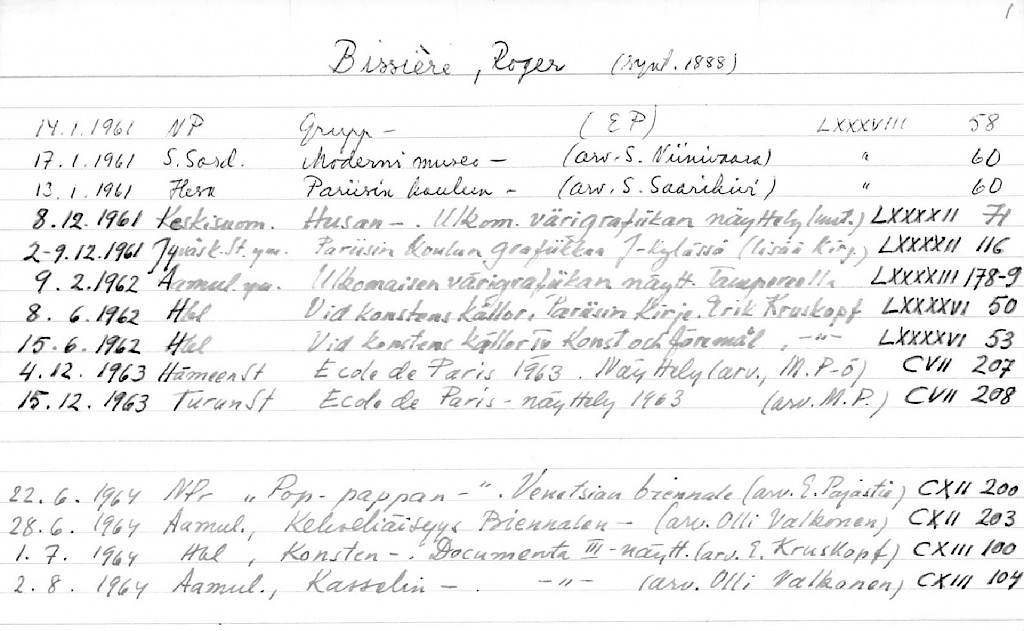 1
Bissière, Roger (synt. 1888)
14.1.1961 NP Grupp — (EP) LXXXVIII 58
17.1.1961 S.Sosd. Moderni museo — (arv. S. Niinivaara) " 60
13.1.1961 Hesa Pariisin koulun — (arv. S. Saarikivi) " 60
8.12.1961 Keskisuom. Husan —. Ulkom. värigrafiikan näyttely (mt.) LXXXXII 71
2-9.12.1961 Jyväsk.St. ym. Pariisin Koulun grafiikkaa J-kylässä (lisää Kirj.) LXXXXII 116
9.2.1962 Aamul. ym. Ulkomaisen värigrafiikan näytt. Tampereella LXXXXIII 178-9
8.6.1962 Hbl Vid konstens källor. Pariisin Kirje. Erik Kruskopf LXXXXVI 50
15.6.1962 Hbl Vid konstens källor IV Konst och föremål, -"- LXXXXVI 53
4.12.1963 HämeenSt Ecole de Paris 1963. Näyttely (arv., M.P-ö) CVII 207
15.12.1963 TurunSt Ecole de Paris - näyttely 1963 (arv. M.P.) CVII 208
22.6.1964 NPr „Pop-pappan —". Venetsian biennale (arv. E. Pajastie) CXII 200
28.6.1964 Aamul., Biennalen — (arv. Olli Valkonen) CXII 203
1.7.1964 Hbl, Konsten —. Documenta III-näytt. (arv. E. Kruskopf) CXIII 100
2.8.1964 Aamul., Kasselin — -"- (arv. Olli Valkonen) CXIII 104